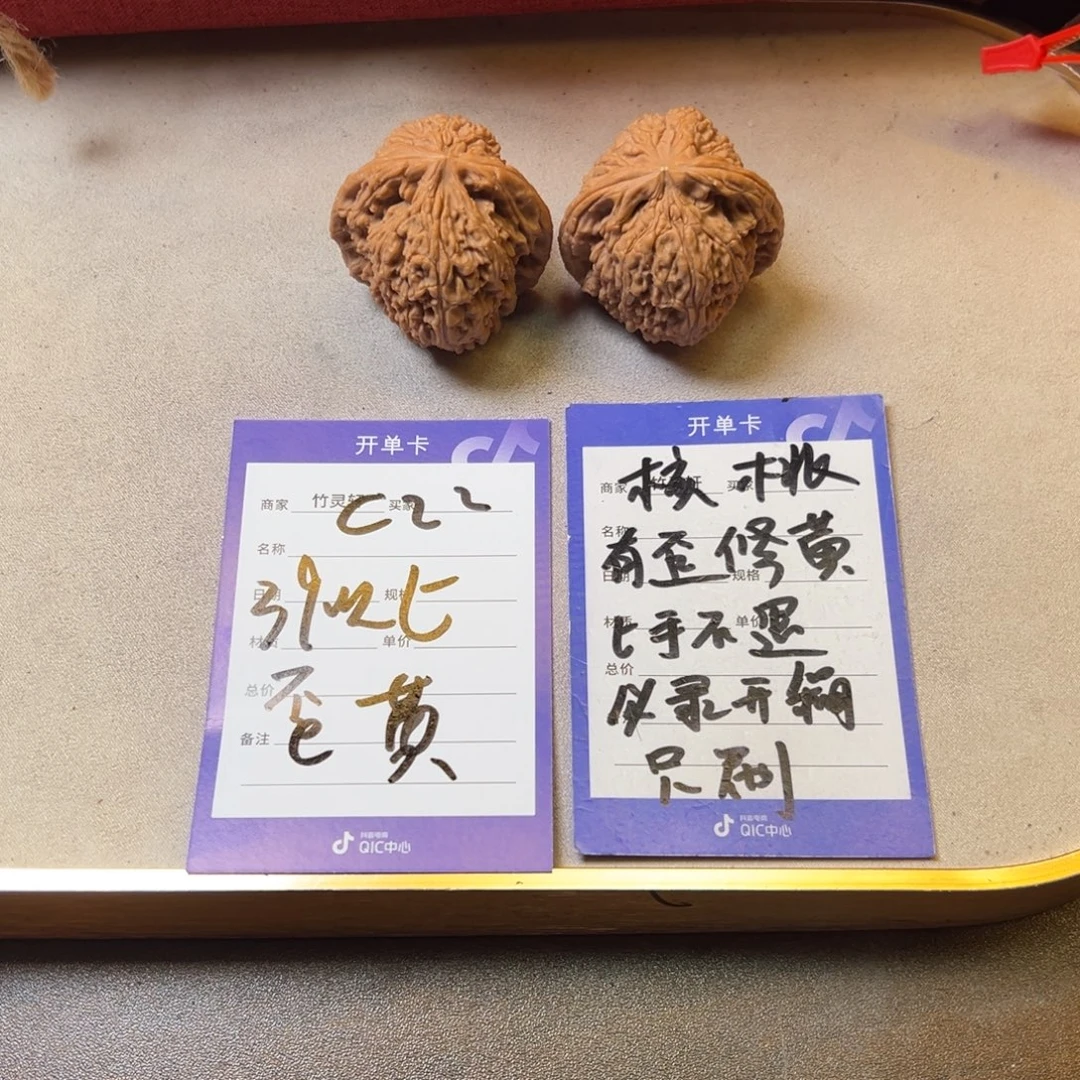 开单卡
商家 竹灵轩 买家
C22
名称
日期 规格
材质 单价
总价
歪 黄
备注
抖音电商
QIC中心
开单卡
商家 买家
核桃
名称
有歪修黄
日期 规格
上手不退
材质 单价
总价
必录开箱
只刷
抖音电商
QIC中心